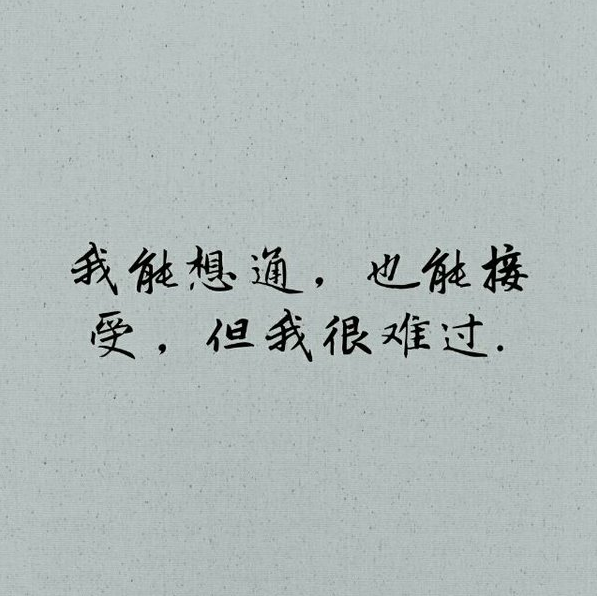 我能想通，也能接
受，但我很难过.